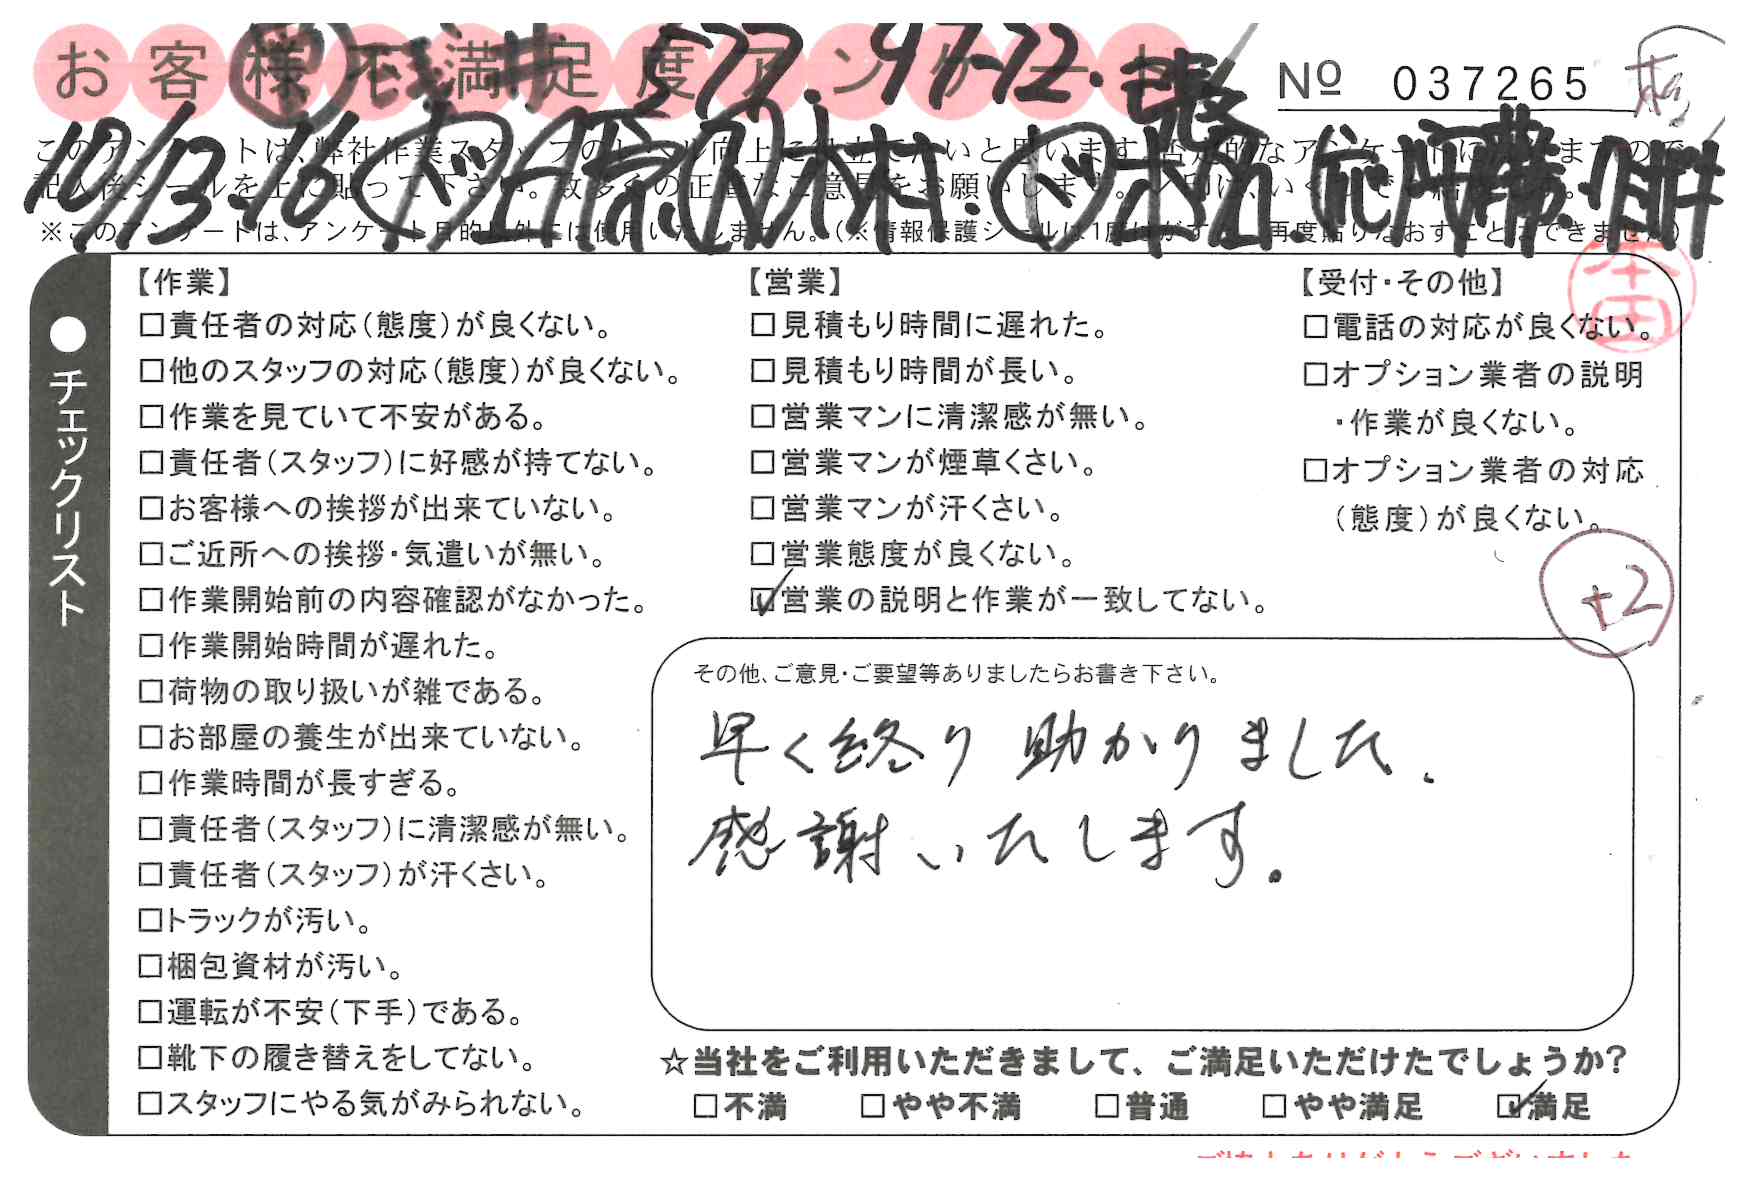 お客様不満足度アンケート
577. 97-72.
No 037265
このアンケートは、弊社作業スタッフの
※このアンケートは、アンケート目的以外には使用いたしません。(※情報保護シールは1度はがすと、再度貼りなおすことはできません)
●チェックリスト
【作業】
□責任者の対応(態度)が良くない。
□他のスタッフの対応(態度)が良くない。
□作業を見ていて不安がある。
□責任者(スタッフ)に好感が持てない。
□お客様への挨拶が出来ていない。
□ご近所への挨拶・気遣いが無い。
□作業開始前の内容確認がなかった。
□作業開始時間が遅れた。
□荷物の取り扱いが雑である。
□お部屋の養生が出来ていない。
□作業時間が長すぎる。
□責任者(スタッフ)に清潔感が無い。
□責任者(スタッフ)が汗くさい。
□トラックが汚い。
□梱包資材が汚い。
□運転が不安(下手)である。
□靴下の履き替えをしてない。
□スタッフにやる気がみられない。
【営業】
□見積もり時間に遅れた。
□見積もり時間が長い。
□営業マンに清潔感が無い。
□営業マンが煙草くさい。
□営業マンが汗くさい。
□営業態度が良くない。
☑営業の説明と作業が一致してない。
【受付・その他】
□電話の対応が良くない。
□オプション業者の説明
・作業が良くない。
□オプション業者の対応
(態度)が良くない。
本田
+2
その他、ご意見・ご要望等ありましたらお書き下さい。
早く終り助かりました.
感謝いたします。
☆当社をご利用いただきまして、ご満足いただけたでしょうか?
□不満 □やや不満 □普通 □やや満足 ☑満足